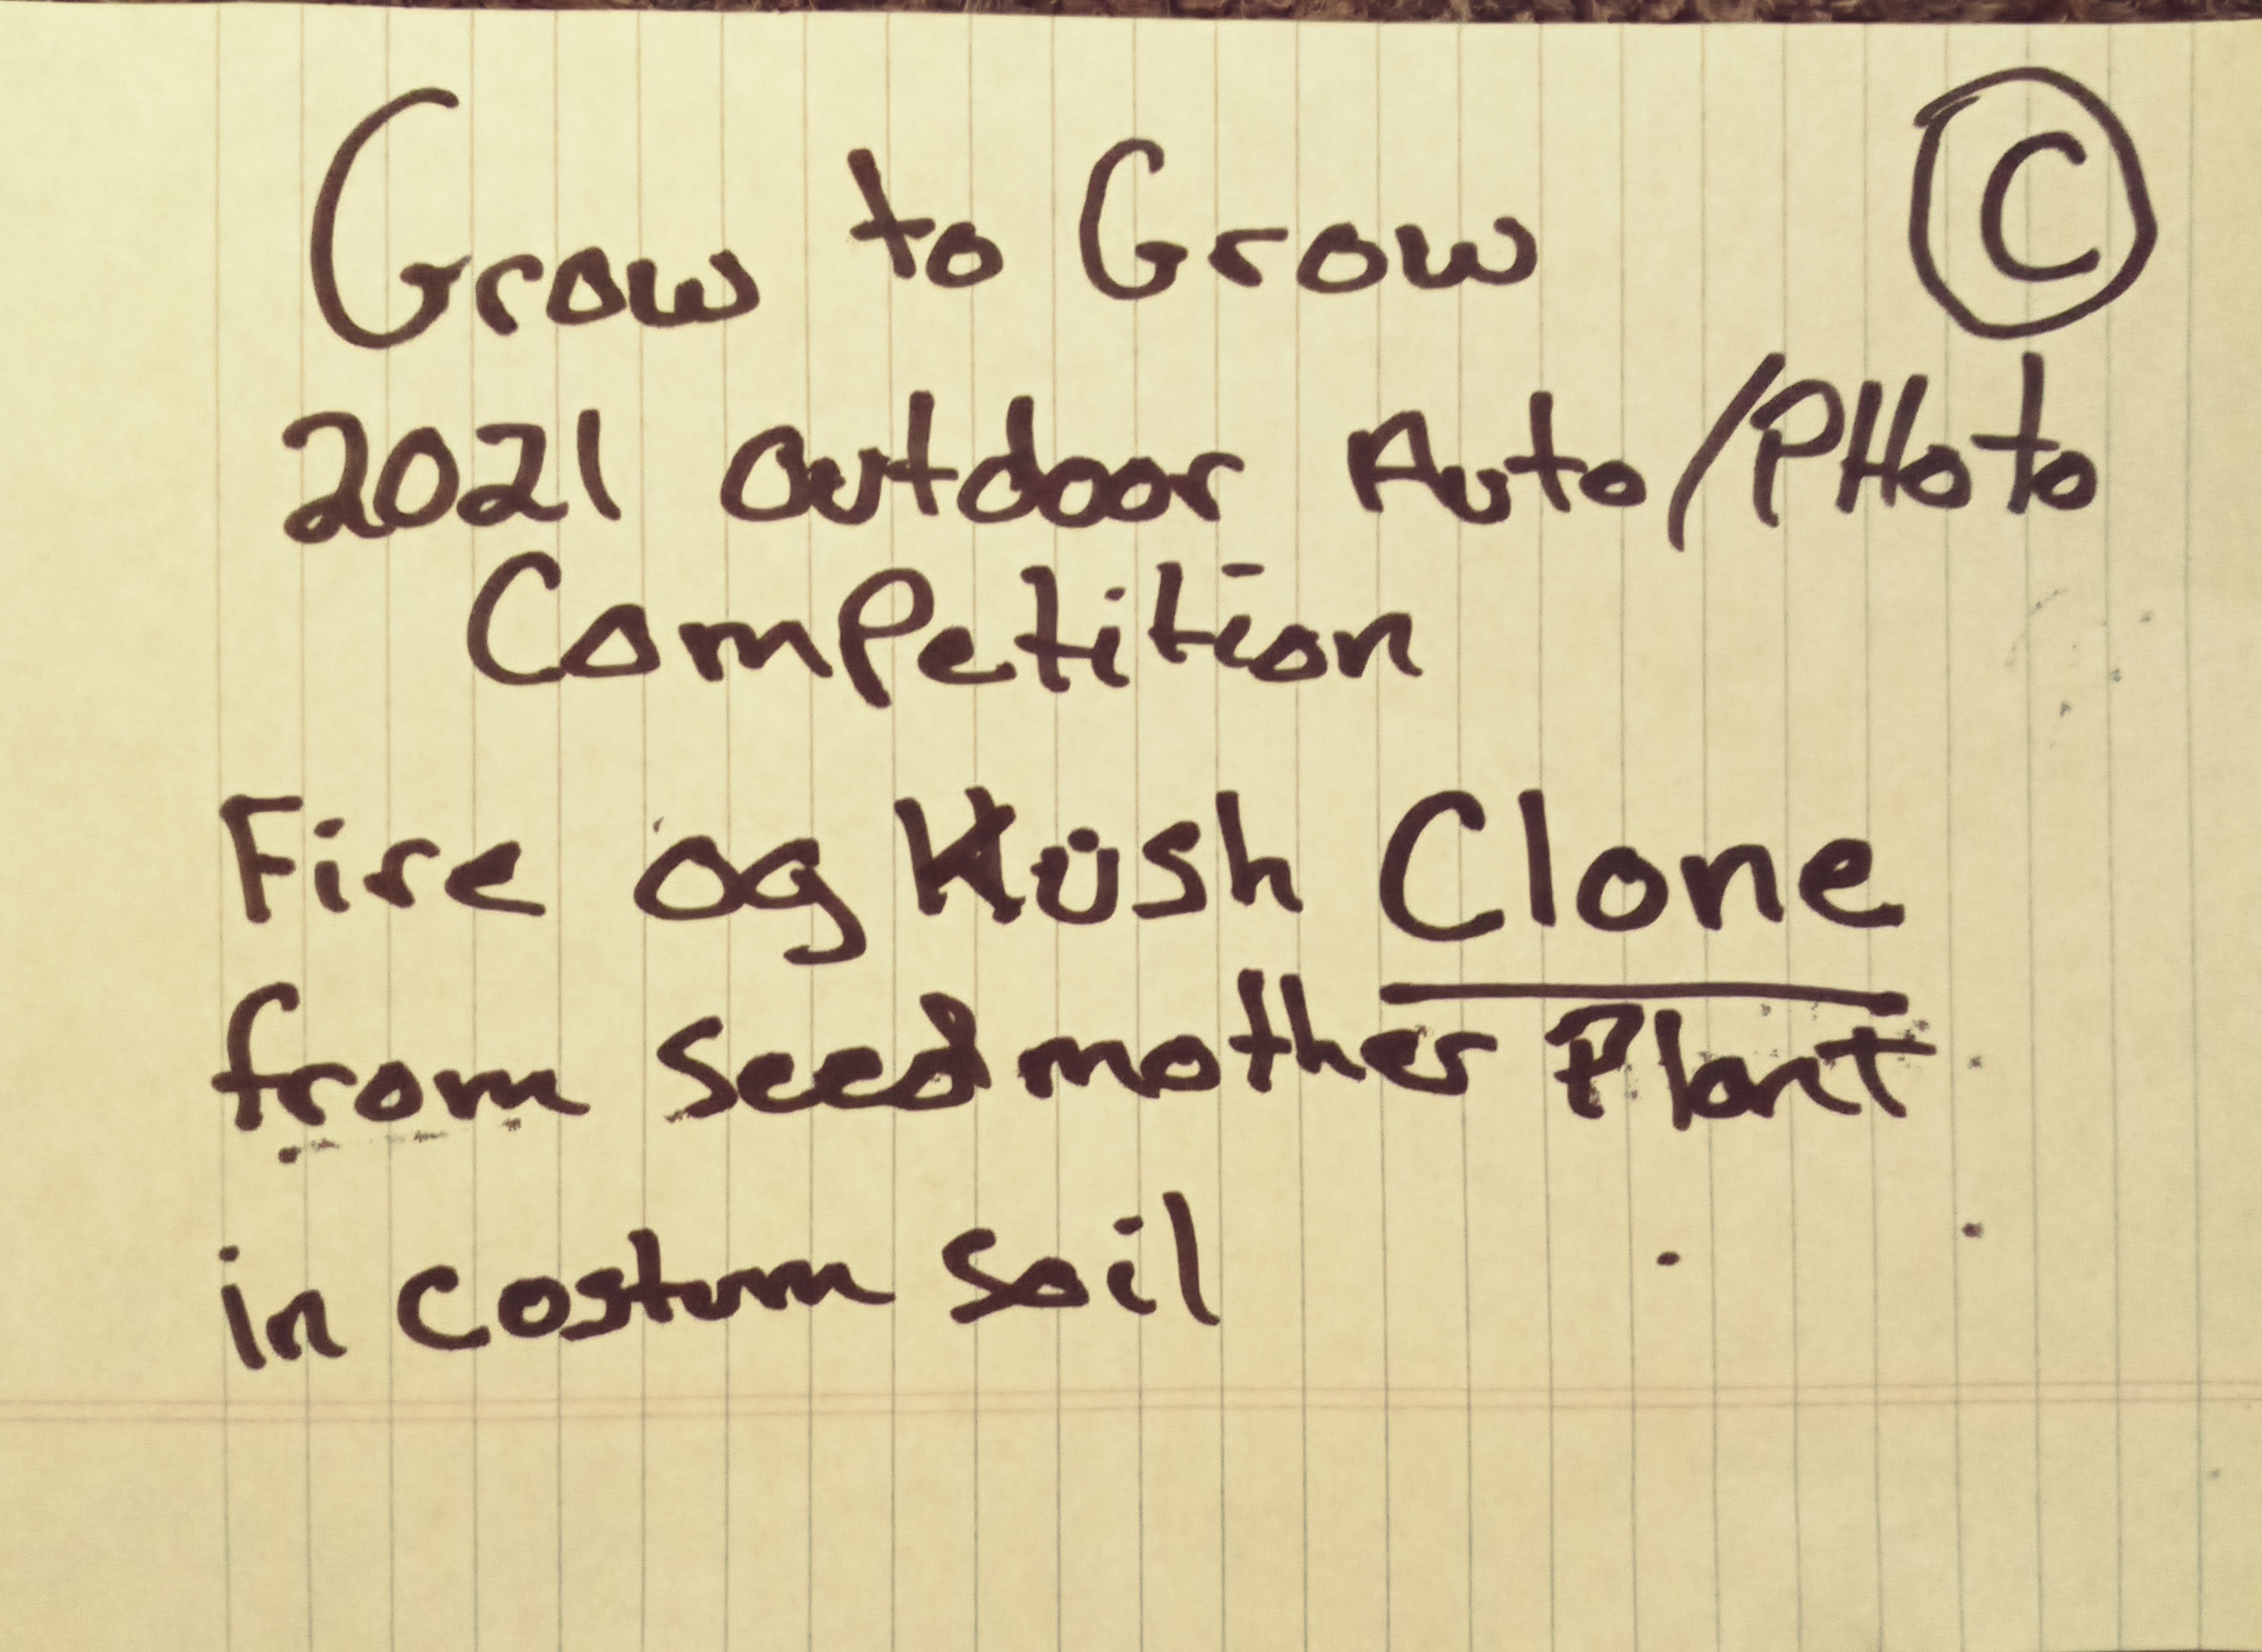 Grow to Grow ©
2021 Outdoor Auto/PHoto
Competition
Fire og Kush Clone
from seed mother Plant
in costum soil